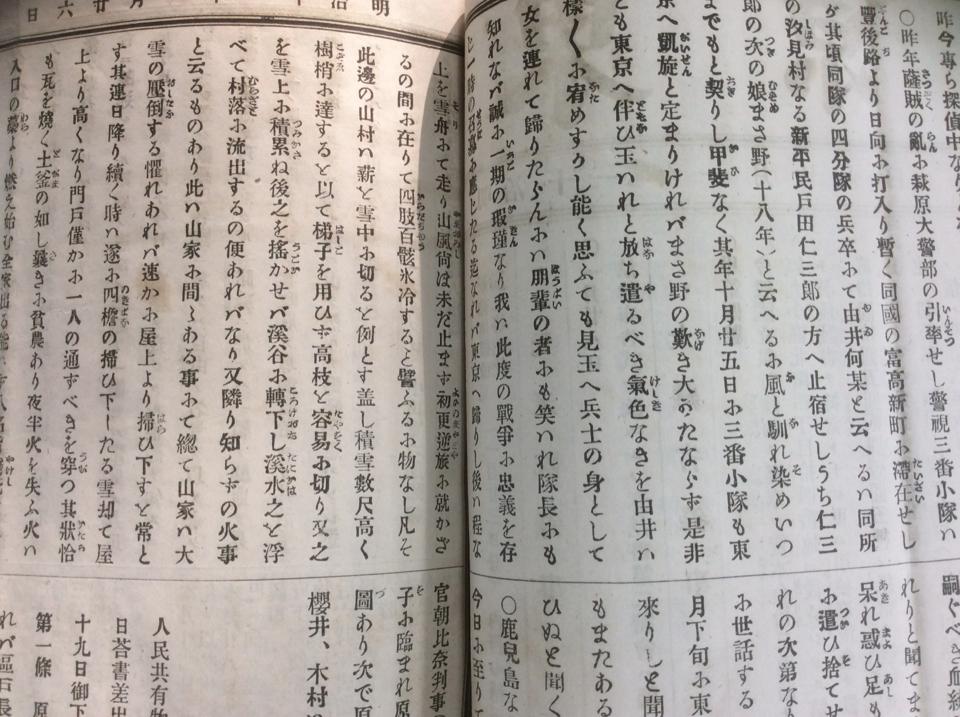 昨今專ら探偵中なり
○昨年薩賊の亂に萩原大警部の引率せし警視三番小隊ハ
豐後路より日向に打入り暫く同國の富高新町に滯在せし
が其頃同隊の四分隊の兵卒にて由井何某と云へるハ同所
の汐見村なる新平民戸田仁三郎の方へ止宿せしうち仁三
郎の次の娘まさ野(十八年)と云へるに風と馴れ染めいつ
までもと契りし甲斐なく其年十月廿五日に三番小隊も東
京へ凱旋と定まりけれバまさ野の歎き大かたならず是非
とも東京へ伴ひ玉ハれと放ち遣るべき氣色なきを由井ハ
樣〱に宥めすかし能く思ふても見玉へ兵士の身として
女を連れて歸りたらんにハ朋輩の者にも笑ハれ隊長にも
知れなバ誠に一期の瑕瑾なり我ハ此度の戰爭に忠義を存
一時の召募に應じたる迄なれバ東京へ歸りし後ハ程な
嗣ぐべき血統
れりと聞てま
呆れ惑ひ足も
に遣ひ捨てせ
れの次第な
に世話する
月下旬に東
來りしと聞
もまたある
ひぬと聞く
○鹿兒島な
今日に至り
上を雪舟にて走り山風尚ほ未だ止まず初更逆旅に就かざ
るの間に在りて四肢百骸氷冷すると譬ふるに物なし凡そ
此邊の山村ハ薪を雪中に切ると例とす盖し積雪數尺高く
樹梢に達すると以て梯子を用ひず高枝と容易に切り又之
を雪上に積累ね後之を搖かせバ溪谷に轉下し溪水之と浮
べて村落に流出するの便あれバなり又隣り知らずの火事
と云るものあり此ハ山家に間〻ある事にて總て山家ハ大
雪の壓倒する懼れあれバ速かに屋上より掃ひ下すと常と
す其連日降り續く時ハ遂に四檐の掃ひ下したる雪却て屋
上より高くなり門戸僅かに一人の通ずべきを穿つ其狀恰
も瓦を燒く土釜の如し曩きに貧農あり夜半火を失ふ火ハ
入口の藁より燃え始む全家出る
官朝比奈判事
子に臨まれ原
圖あり次で原
櫻井、木村
人民共有物
日荅書差出
十九日御下
第一條 原
れバ區石長